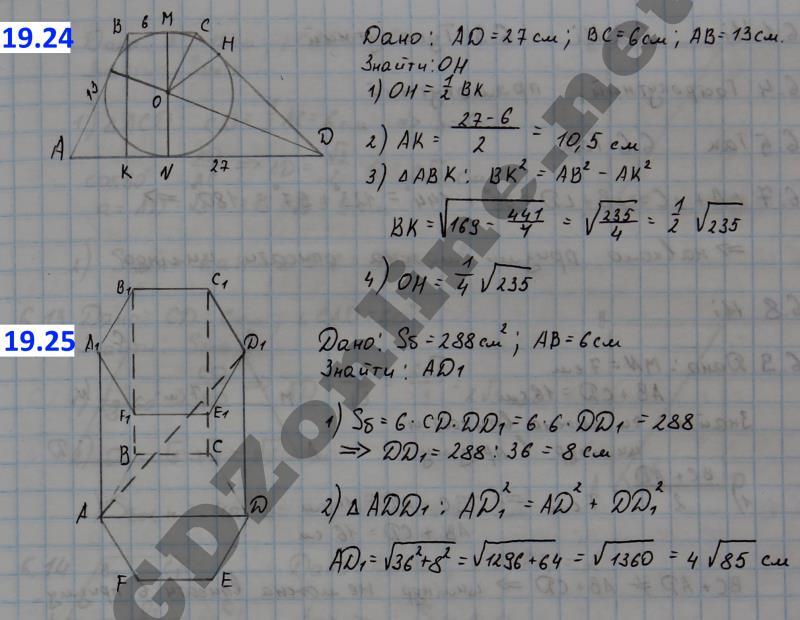 19.24
B 6 M C
H
13
O
A
D
K N 27
Дано: AD = 27 см; BC = 6 см; AB = 13 см.
Знайти: OH
1) OH = 1/2 BK
2) AK = (27 - 6)/2 = 10,5 см
3) △ABK: BK² = AB² - AK²
BK = √(169 - 441/4) = √(235/4) = 1/2 √235
4) OH = 1/4 √235
19.25
B₁ C₁
A₁ D₁
F₁ E₁
B C
A D
F E
Дано: Sб = 288 см²; AB = 6 см
Знайти: AD₁
1) Sб = 6 · CD · DD₁ = 6 · 6 · DD₁ = 288
⇒ DD₁ = 288 : 36 = 8 см
2) △ADD₁: AD₁² = AD² + DD₁²
AD₁ = √(36² + 8²) = √(1296 + 64) = √1360 = 4 √85 см
GDZonline.net